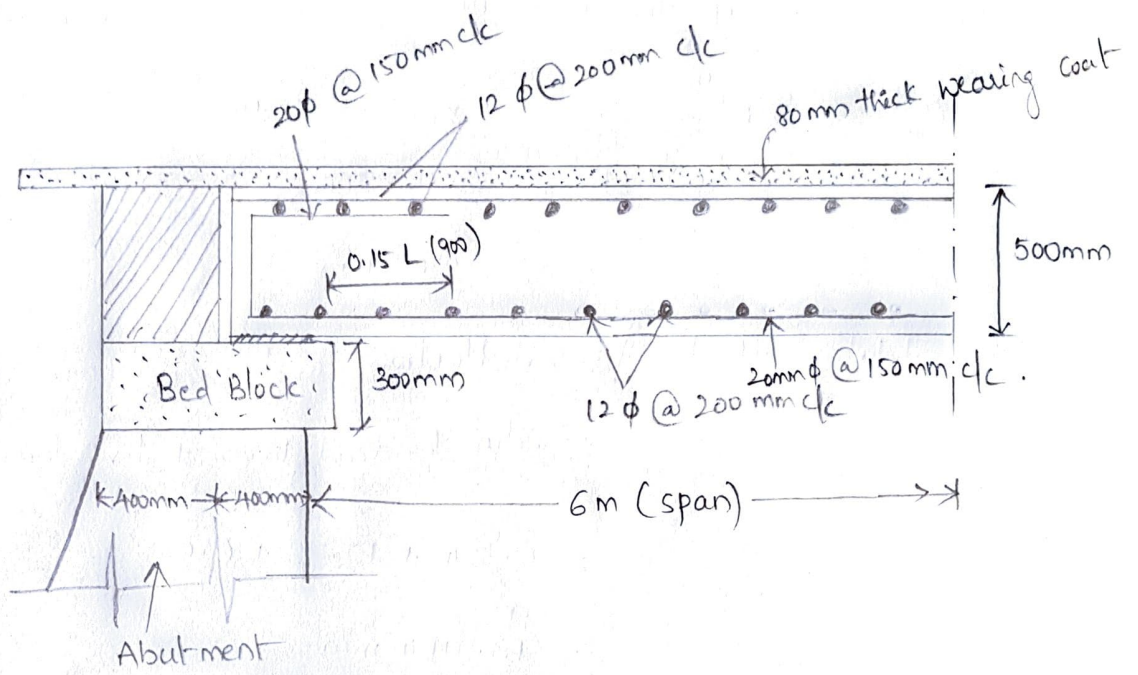 20ϕ @ 150mm c/c
12 ϕ @ 200mm c/c
80 mm thick wearing coat
0.15 L (900)
500mm
Bed Block
300mm
20mmϕ @ 150 mm c/c .
12 ϕ @ 200 mm c/c
400mm
400mm
6m (span)
Abutment